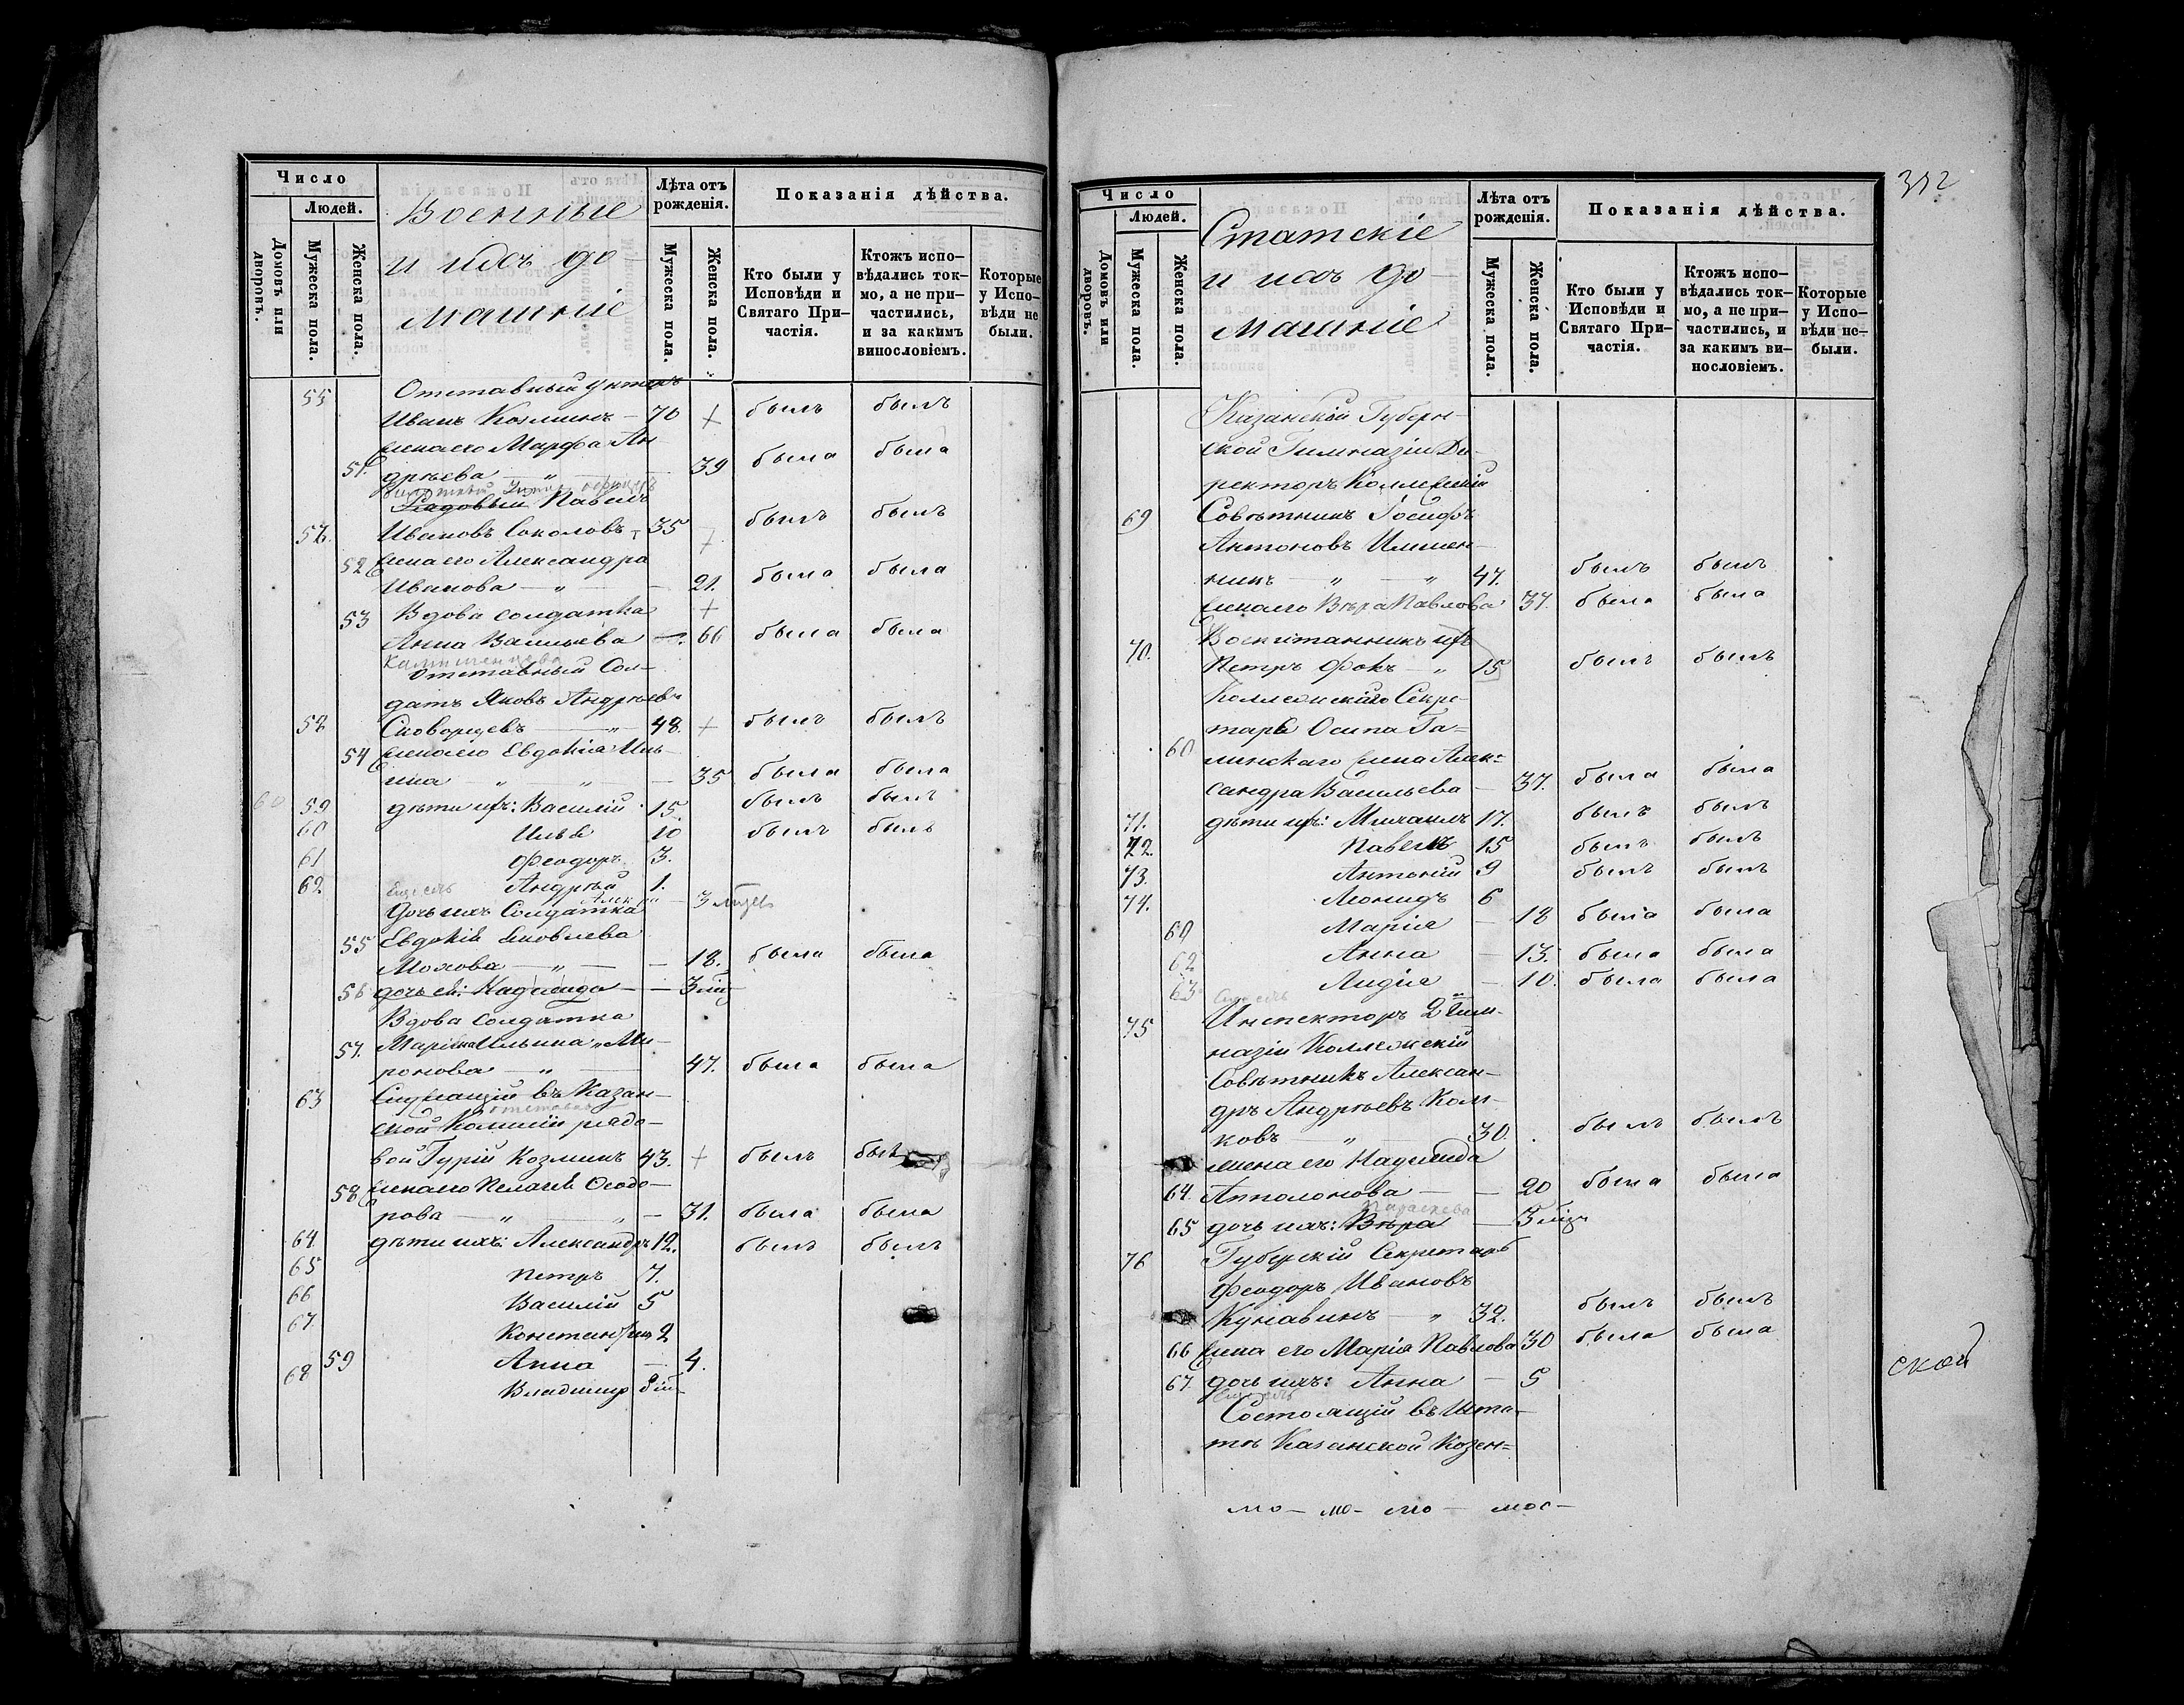 Число
Людей.
Домовъ или дворовъ.
Мужеска пола.
Женска пола.
Военные
и ихъ до-
машніе
Лѣта отъ рожденія.
Мужеска пола.
Женска пола.
Показанія дѣйства.
Кто были у Исповѣди и Святаго При-частія.
Ктожъ испо-вѣдались ток-мо, а не при-частились, и за какимъ винословіемъ.
Которые у Испо-вѣди не были.
55 Отставный унтеръ
Иванъ Козминъ 70 + былъ былъ
жена его Марфа Ан
51. дрѣева „ — 39 была была
Рядовый Павелъ
Ивановъ Соколовъ 35 + былъ былъ
52 жена его Александра
Иванова — „ — 21. была была
53 Вдова солдатка +
Анна Васильева — 66 была была
Отставный Сол-
датъ Яковъ Андреевъ
58 Скворцевъ „ 48. + былъ былъ
54 жена его Евдокія Иль-
ина „ „ — 35 была была
60 59 дѣти ихъ: Василій 15. былъ былъ
60 Илья 10 былъ былъ
61 Феодоръ 3.
62 Андрей 1.
дочь ихъ Солдатка
55 Евдокія Яковлева
Мохова — „ — 18. была была
56 дочь ея: Надежда — 3 мѣс
Вдова солдатка
57. Марія Ильина „ Ми-
ронова — „ — 47. была была
63 Служащій въ Казан-
ской Комисіи рядо-
вой Гурій Козминъ 43. + былъ былъ
58 жена его Пелагея Феодо-
рова — „ „ — 31. была была
64. дѣти ихъ: Александръ 12. былъ былъ
65 Петръ 7.
66 Василій 5
67. Константинъ 2
59 Анна — 4.
68 Владимиръ 8 мѣс
312
Число
Людей.
Домовъ или дворовъ.
Мужеска пола.
Женска пола.
Статскіе
и ихъ до-
машніе
Лѣта отъ рожденія.
Мужеска пола.
Женска пола.
Показанія дѣйства.
Кто были у Исповѣди и Святаго При-частія.
Ктожъ испо-вѣдались ток-мо, а не при-частились, и за какимъ ви-нословіемъ.
Которые у Испо-вѣди не-были.
Казанской Губерн-
ской Гимназіи Ди-
ректоръ Коллежскій
69 Совѣтникъ Іосифъ
Антоновъ
„ „ 47. былъ былъ
жена его Вѣра Павлова 37. была была
Воспитанникъ ихъ
70. Петръ Фокъ — „ 15 былъ былъ
Коллежскаго Секре-
таря Осипа Га-
60 линскаго жена Алек-
сандра Васильева — 37. была была
71. дѣти ихъ: Михаилъ 17. былъ былъ
72. Павелъ 15 былъ былъ
73. Антоній 9 былъ былъ
74. Леонидъ 6
Марія — 18 была была
62 Анна — 13. была была
63 Лидія — 10. была была
75 Инспекторъ 2й Гим-
назіи Коллежскій
Совѣтникъ Алексан-
дръ Андреевъ
ковъ — „ 30. былъ былъ
жена его Надежда
64. Апполонова — — 20 была была
Параскева
65 дочь ихъ: Вѣра — 3 мѣс
76 Губерскій Секретарь
Феодоръ Ивановъ
Кунавинъ — „ 32. былъ былъ
66 жена его Марія Павлова 30 была была
67. дочь ихъ: Анна — 5
Состоящій въ Шта-
тѣ Казанской Козен-
ской
мо — мо — мо — мос —